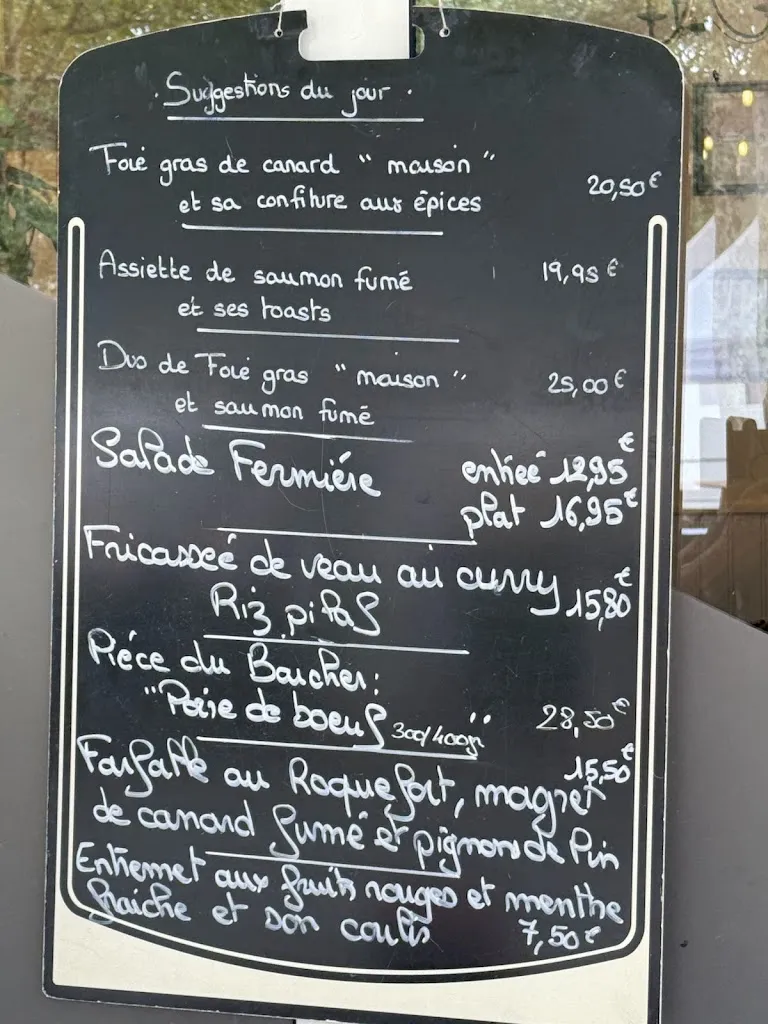 . Suggestions du jour .
Foie gras de canard " maison "
et sa confiture aux épices
20,50€
Assiette de saumon fumé 19,95 €
et ses toasts
Duo de Foie gras " maison " 25,00 €
et saumon fumé
Salade Fermière entrée 12,95 €
plat 16,95 €
Fricasseé de veau au curry
Riz pilaf 15,80 €
Piéce du Boucher:
"Poire de boeuf 300/400gr" 28,50 €
Farfalle au Roquefort, magret 15,50 €
de canard fumé et pignons de Pin
Entremet aux fruits rouges et menthe
fraiche et son coulis 7,50 €